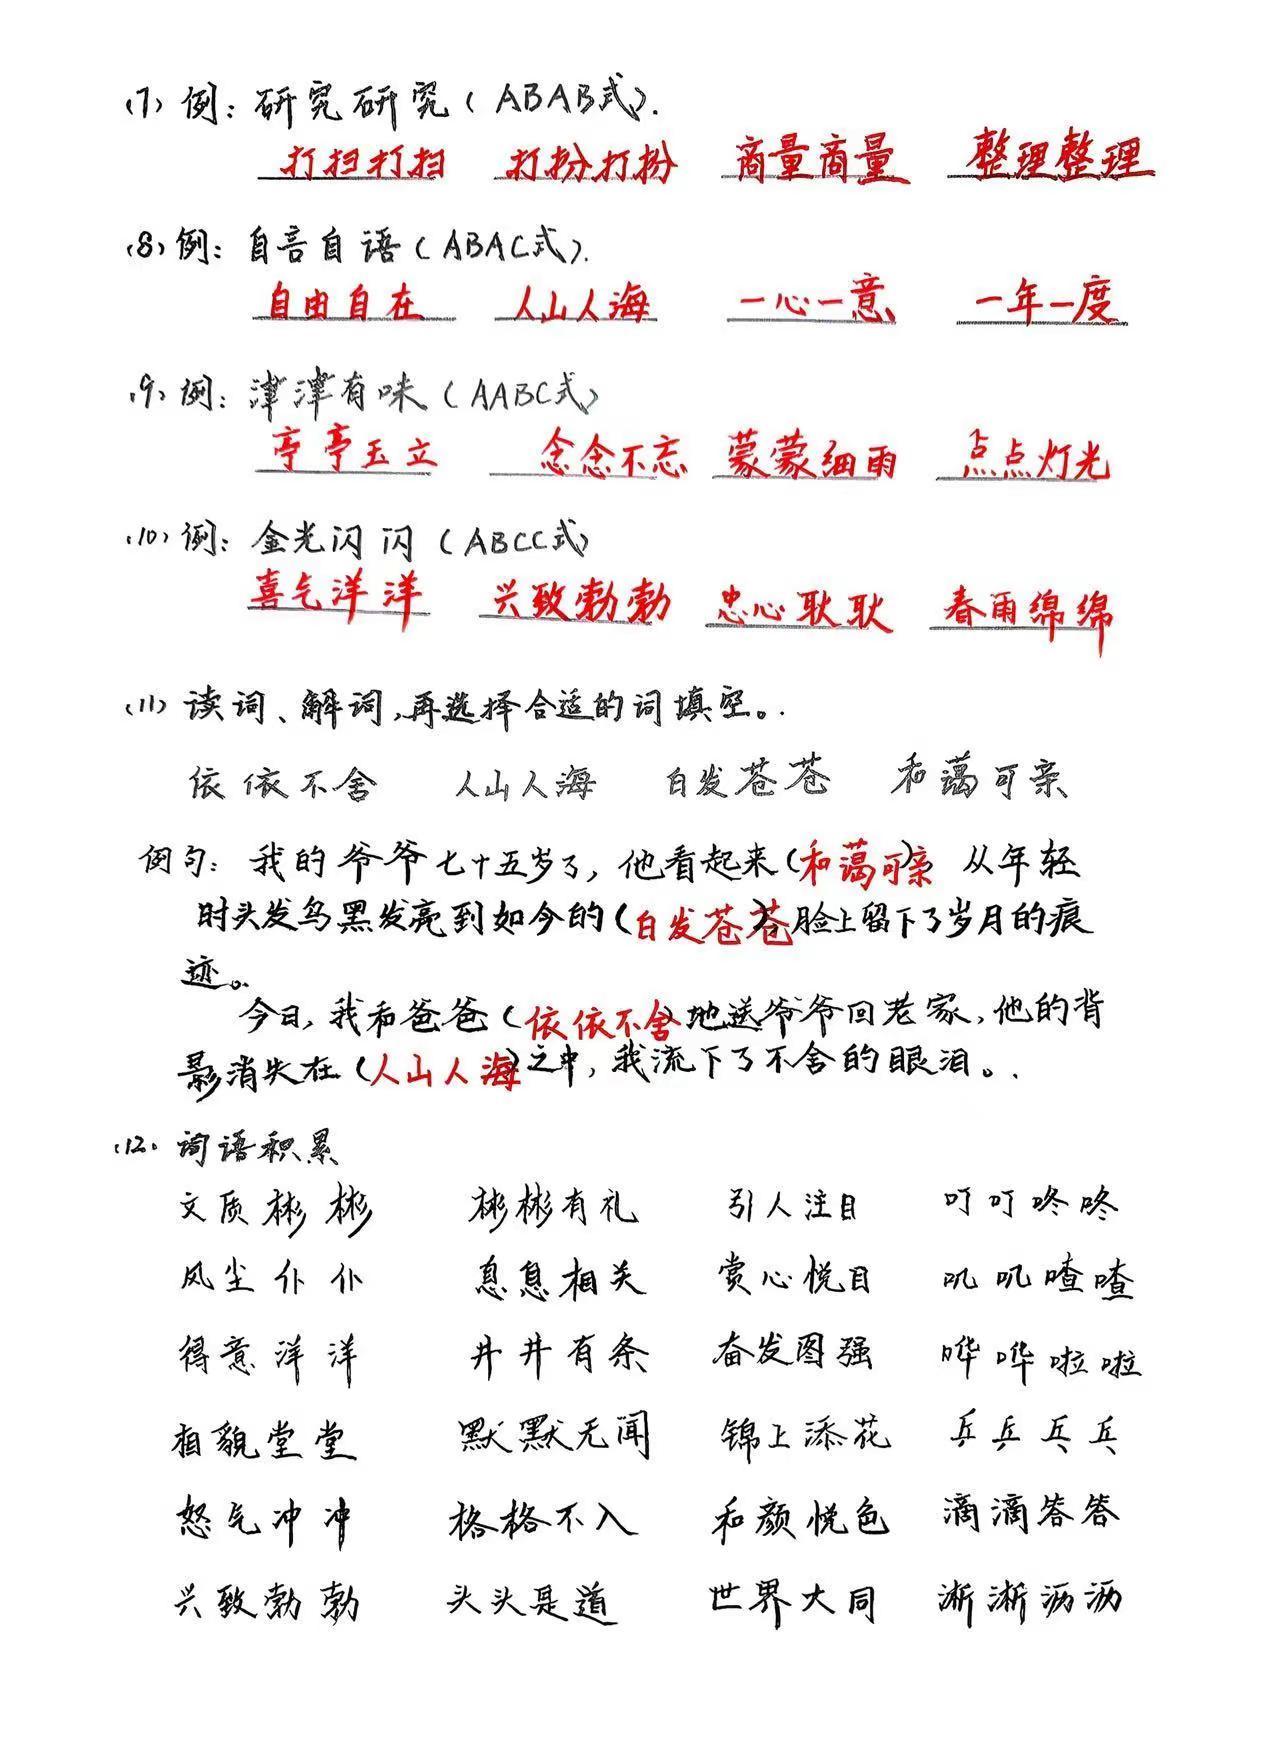 (7) 例：研究研究（ABAB式）.
打扫打扫 打扮打扮 商量商量 整理整理
(8) 例：自言自语（ABAC式）.
自由自在 人山人海 一心一意 一年一度
(9) 例：津津有味（AABC式）
亭亭玉立 念念不忘 蒙蒙细雨 点点灯光
(10) 例：金光闪闪（ABCC式）
喜气洋洋 兴致勃勃 忠心耿耿 春雨绵绵
(11) 读词、解词，再选择合适的词填空。.
依依不舍 人山人海 白发苍苍 和蔼可亲
例句：我的爷爷七十五岁了，他看起来（和蔼可亲）从年轻
时头发乌黑发亮到如今的（白发苍苍），脸上留下了岁月的痕
迹。
今日，我和爸爸（依依不舍）地送爷爷回老家，他的背
影消失在（人山人海）之中，我流下了不舍的眼泪。.
(12. 词语积累
文质彬彬 彬彬有礼 引人注目 叮叮咚咚
风尘仆仆 息息相关 赏心悦目 叽叽喳喳
得意洋洋 井井有条 奋发图强 哗哗啦啦
相貌堂堂 默默无闻 锦上添花 乒乒乓乓
怒气冲冲 格格不入 和颜悦色 滴滴答答
兴致勃勃 头头是道 世界大同 淅淅沥沥